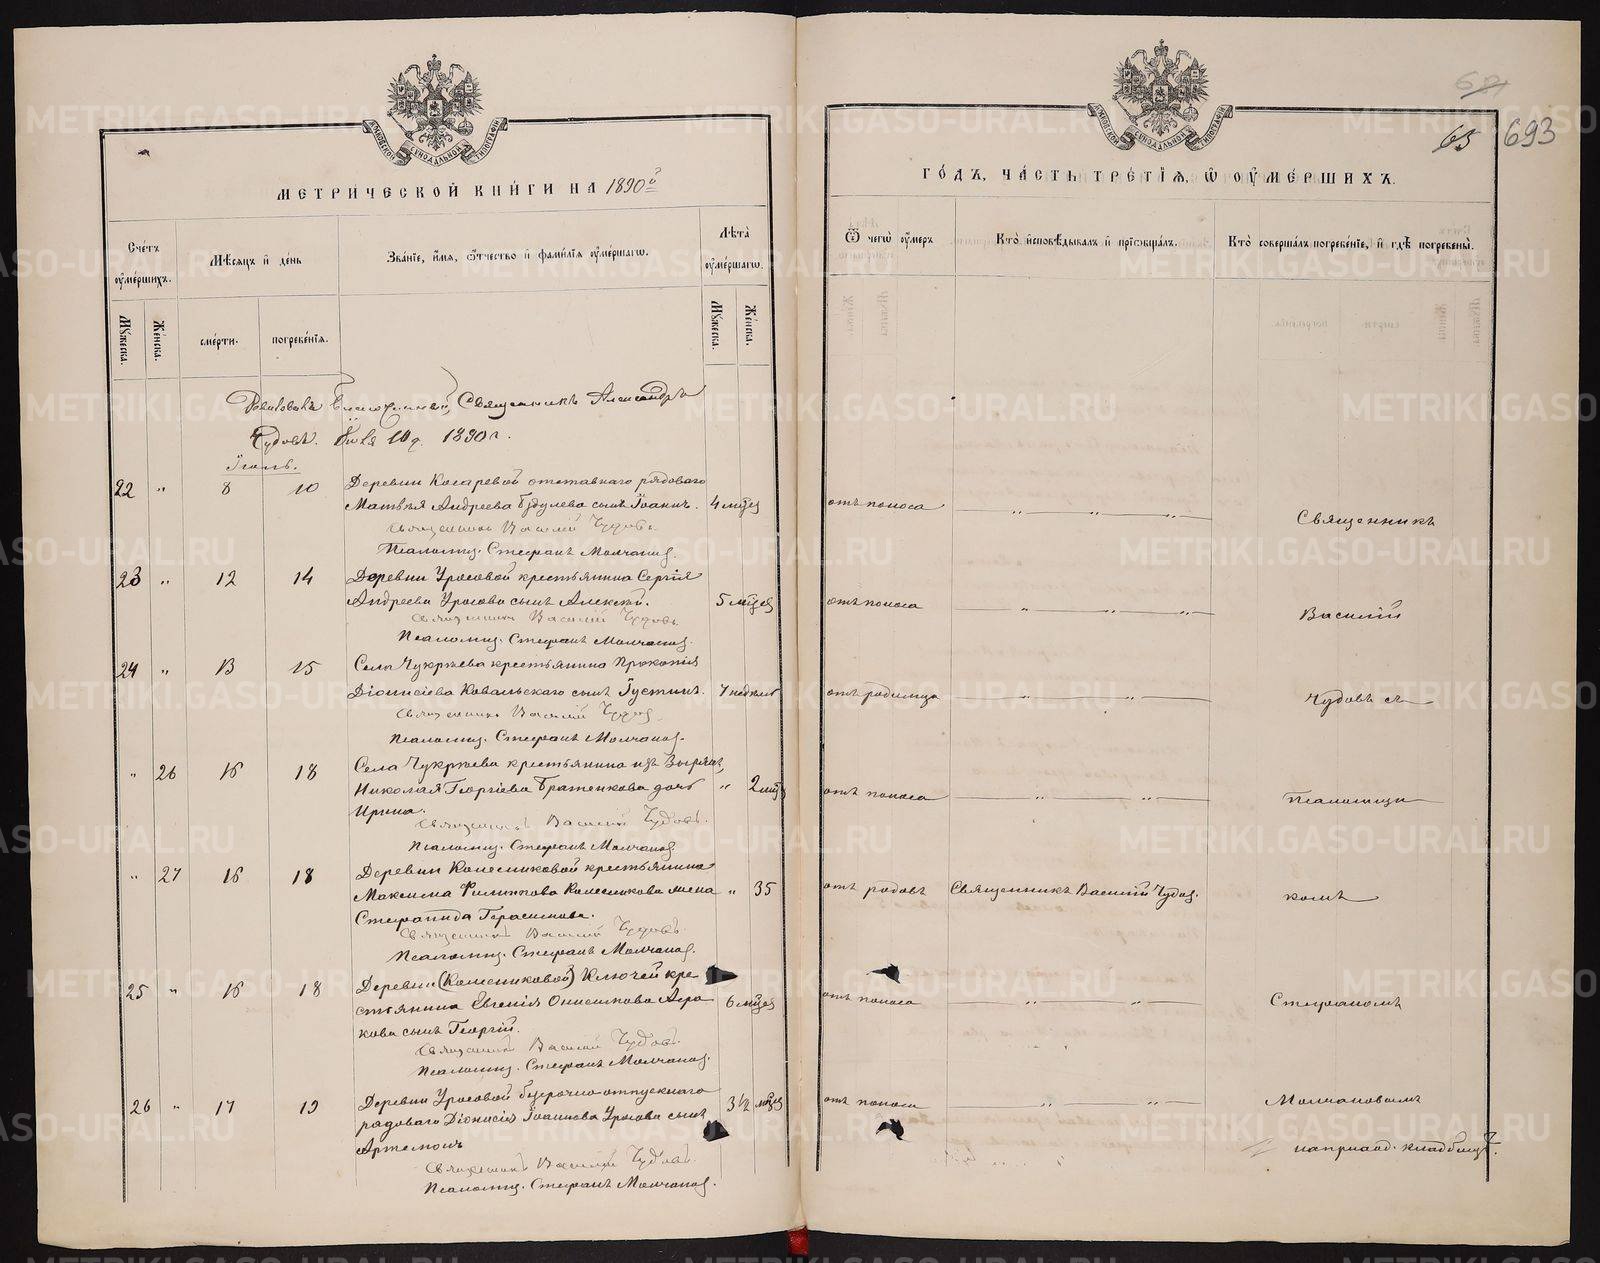 МЕТРИЧЕСКОЙ КНИГИ НА 1890й
Счетъ оумершихъ.
Мѣсяцъ и день
Званіе, имя, ѿчество и фамилія оумершагѡ.
Лѣта оумершагѡ.
Мужеска.
Женска.
смерти.
погребенія.
Мужеска.
Женска.
Священникъ Александръ
Чудовъ. 1890 г.
22 " 8 10 Деревни Косаревой отставнаго рядоваго
Матвѣя Андреева сынъ Іоаннъ. 4 мцѣ
Священникъ Василій Чудовъ.
Псаломщ. Стефанъ Молчанов.
23 " 12 14 Деревни Уросовой крестьянина Сергія
Андреева Уросова сынъ Алексій. 5 мцев
Священникъ Василій Чудовъ.
Псаломщ. Стефанъ Молчанов.
24 " 13 15 Села Чукрѣева крестьянина Прокопія
Діонисіева Ковальскаго сынъ Іустинъ. 7 недѣль
Священникъ Василій Чудов.
Псаломщ. Стефанъ Молчанов.
" 26 16 18 Села Чукрѣева крестьянина изъ
Николая Георгіева Братенкова дочь " 2 мцѣ
Ирина.
Священникъ Василій Чудовъ.
Псаломщ. Стефанъ Молчанов.
" 27 16 18 Деревни Колесниковой крестьянина
Максима Филиппова Колесникова жена " 35
Стефанида Герасимова.
Священникъ Василій Чудовъ.
Псаломщ. Стефанъ Молчанов.
25 " 16 18 Деревни (Колесниковой) Ключей кре-
стьянина Евгенія Онисимова 6 мцев
кова сынъ Георгій.
Священникъ Василій Чудовъ.
Псаломщ. Стефанъ Молчанов.
26 " 17 19 Деревни Уросовой безсрочно-отпускнаго
рядоваго Діонисія Іоаннова Уросова сынъ 3 1/2 мцев
Артемонъ
Священникъ Василій Чудовъ.
Псаломщ. Стефанъ Молчанов.
65 693
ГОДЪ, ЧАСТЬ ТРЕТІЯ, Ѿ ОУМЕРШИХЪ.
Ѿ чегѡ оумеръ
Кто исповѣдывалъ и пріобщалъ.
Кто совершалъ погребеніе, и гдѣ погребены.
отъ поноса " " " Священникъ
отъ поноса " " " Василій
отъ родимца " " " Чудовъ съ
отъ поноса " " Псаломщи
отъ родовъ Священникъ Василій Чудов. комъ
отъ поноса " " Стефаномъ
отъ поноса " " Молчановымъ
на приход. кладбищѣ.
METRIKI.GASO-URAL.RU